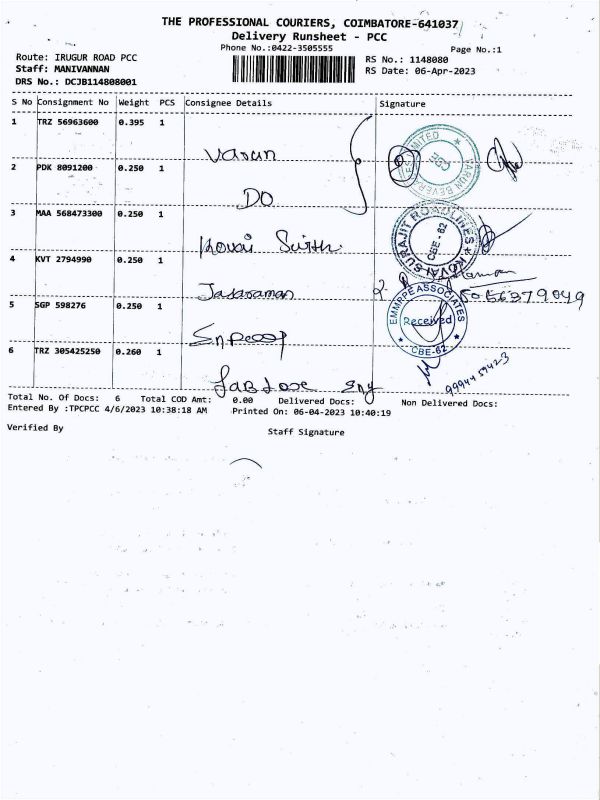 THE PROFESSIONAL COURIERS, COIMBATORE-641037
Delivery Runsheet - PCC
Phone No.:0422-3505555
Page No.:1
Route: IRUGUR ROAD PCC
RS No.: 1148080
Staff: MANIVANNAN
RS Date: 06-Apr-2023
DRS No.: DCJB114808001
S No Consignment No Weight PCS Consignee Details Signature
1 TRZ 56963600 0.395 1
Varun
2 PDK 8091200 0.250 1
DO
3 MAA 568473300 0.250 1
Kovai
KOVAI SURAJIT ROADLINES
CBE - 62
4 KVT 2794990 0.250 1
Jayaraman
5 SGP 598276 0.250 1
EMMRPE ASSOCIATES
Received
CBE-62
6 TRZ 305425250 0.260 1
Total No. Of Docs: 6 Total COD Amt: 0.00 Delivered Docs: Non Delivered Docs:
Entered By :TPCPCC 4/6/2023 10:38:18 AM Printed On: 06-04-2023 10:40:19
Verified By Staff Signature